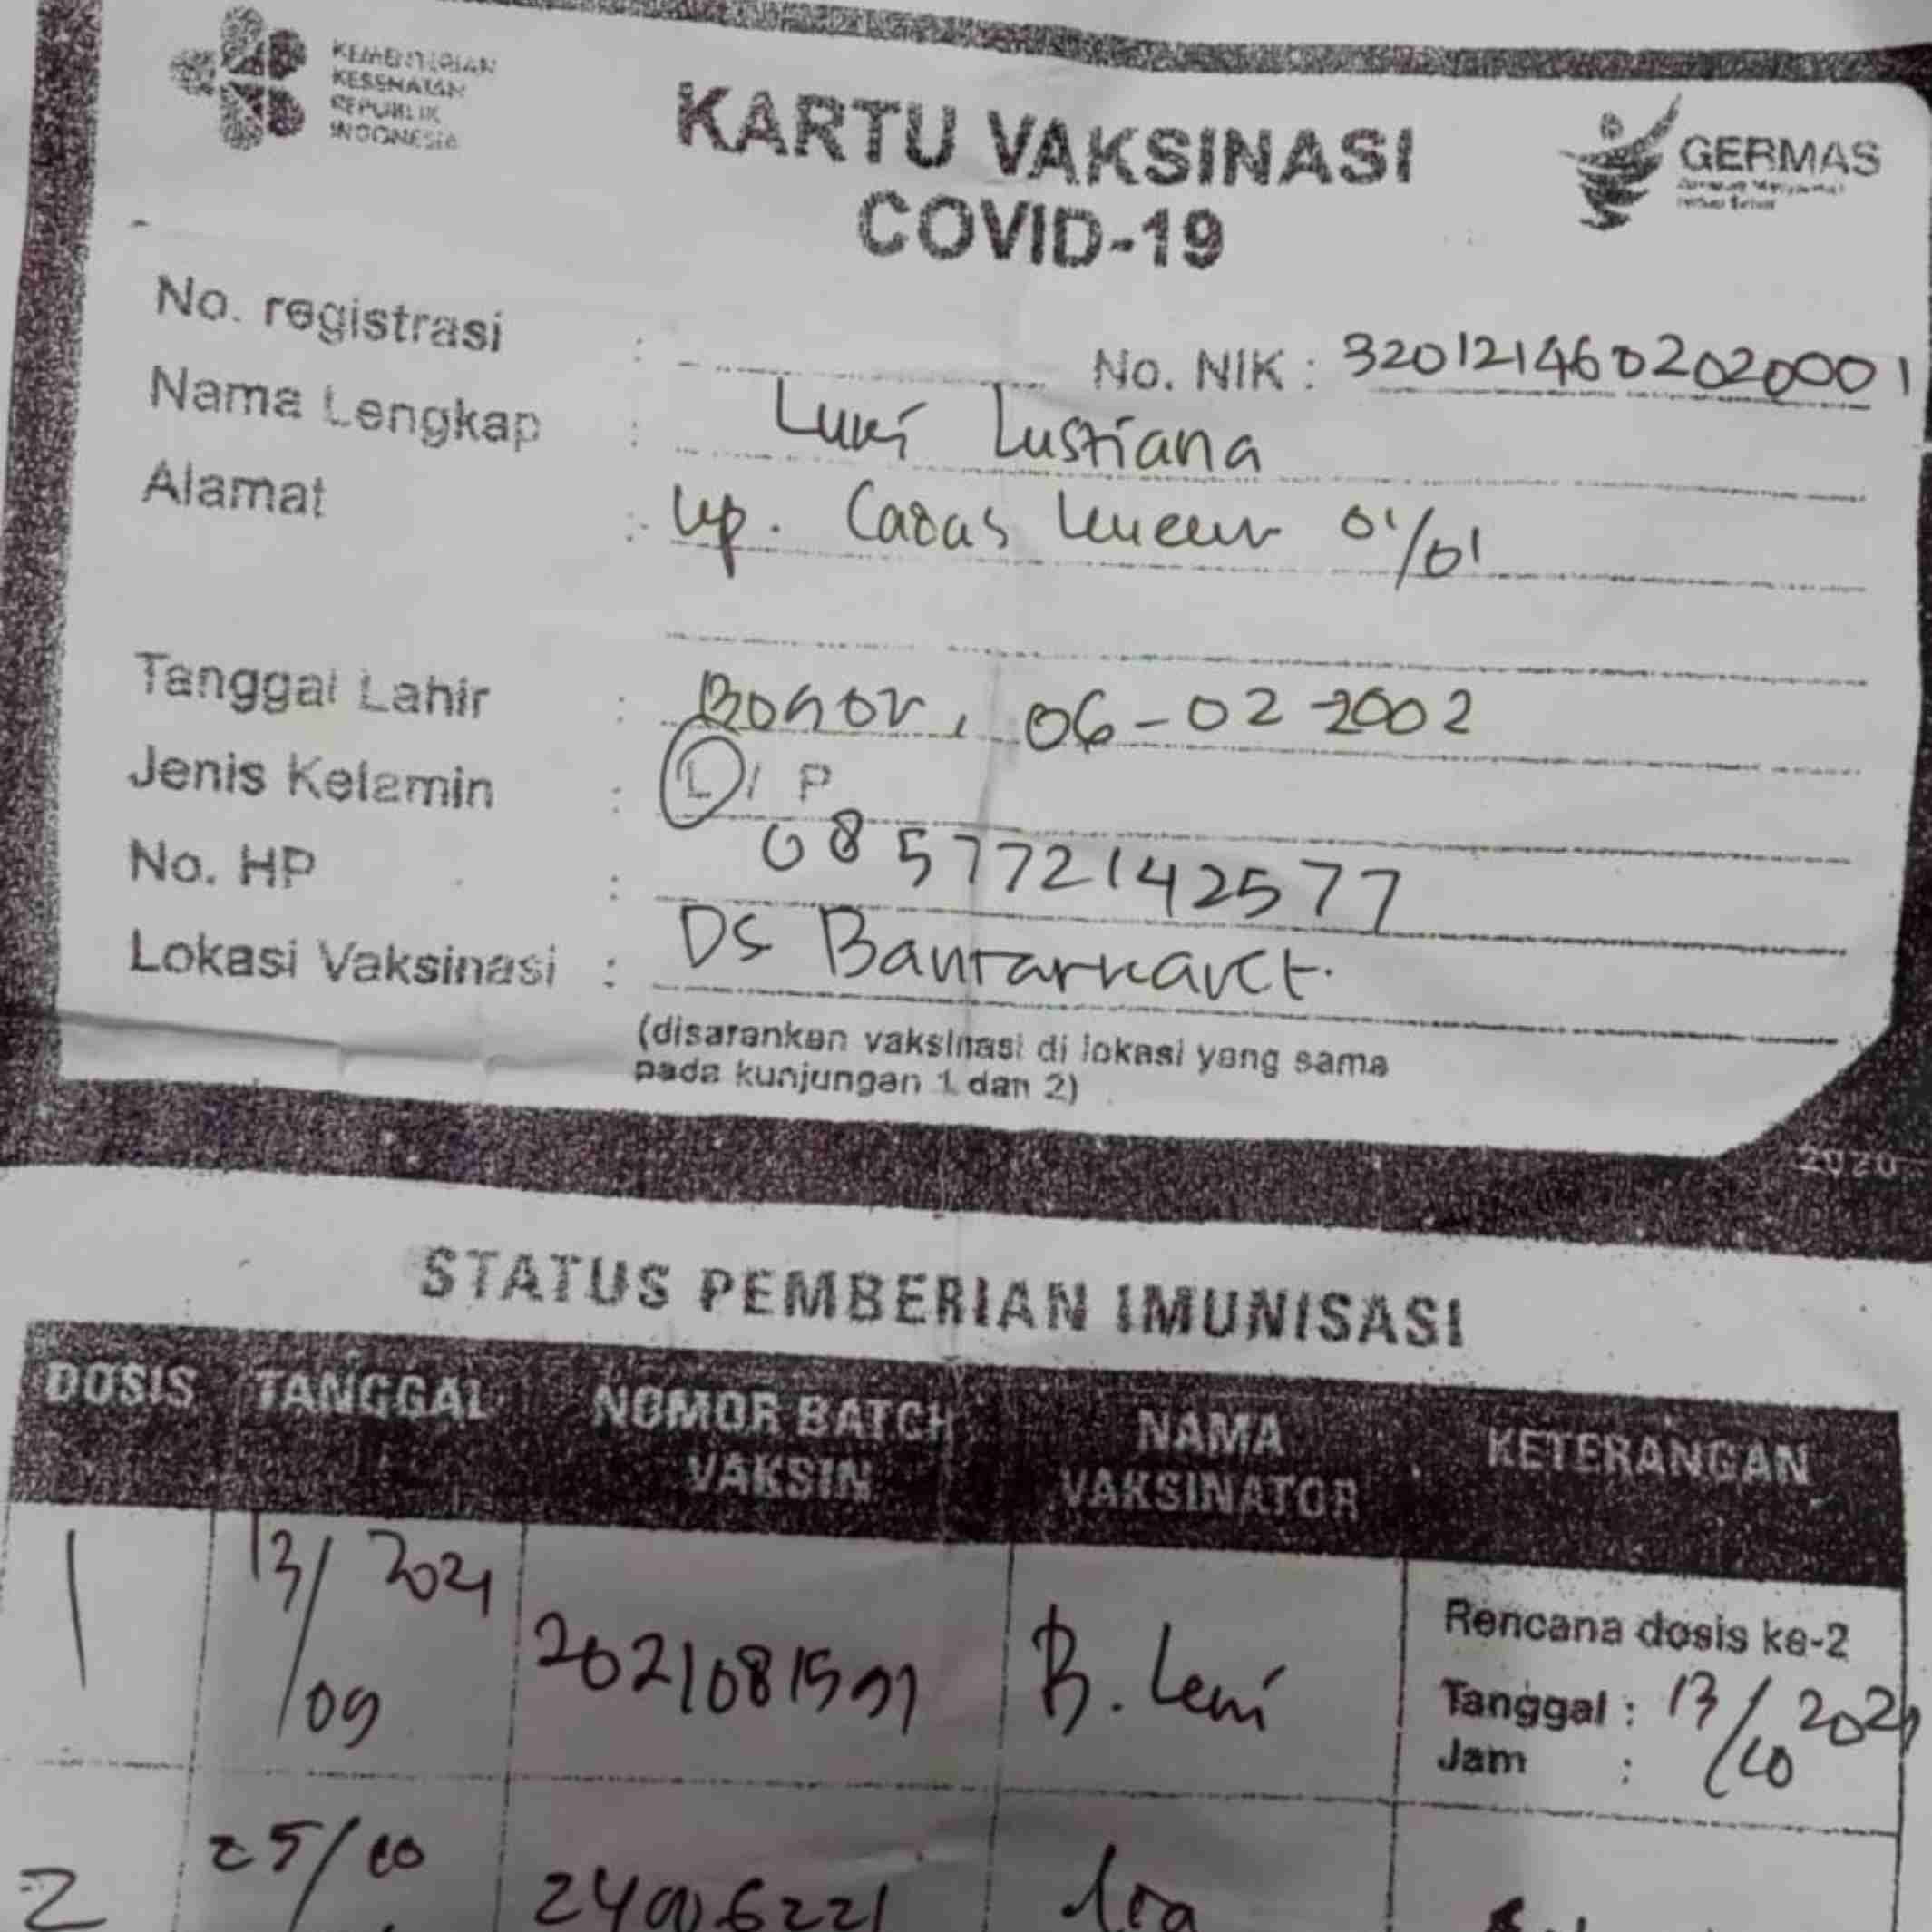 KEMENTERIAN
KESEHATAN
REPUBLIK
INDONESIA
KARTU VAKSINASI
COVID-19
GERMAS
No. registrasi :
No. NIK : 3201214602020001
Nama Lengkap : Luni Lustiana
Alamat : kp. 01/01
Tanggal Lahir : Bogor, 06-02-2002
Jenis Kelamin : L / P
No. HP : 085772142577
Lokasi Vaksinasi : DS Bantarkaret.
(disarankan vaksinasi di lokasi yang sama
pada kunjungan 1 dan 2)
2020
STATUS PEMBERIAN IMUNISASI
DOSIS TANGGAL NOMOR BATCH VAKSIN NAMA VAKSINATOR KETERANGAN
1 13/09 2021 B. Leni
Rencana dosis ke-2
Tanggal : 13/10 2021
Jam :
2 25/10